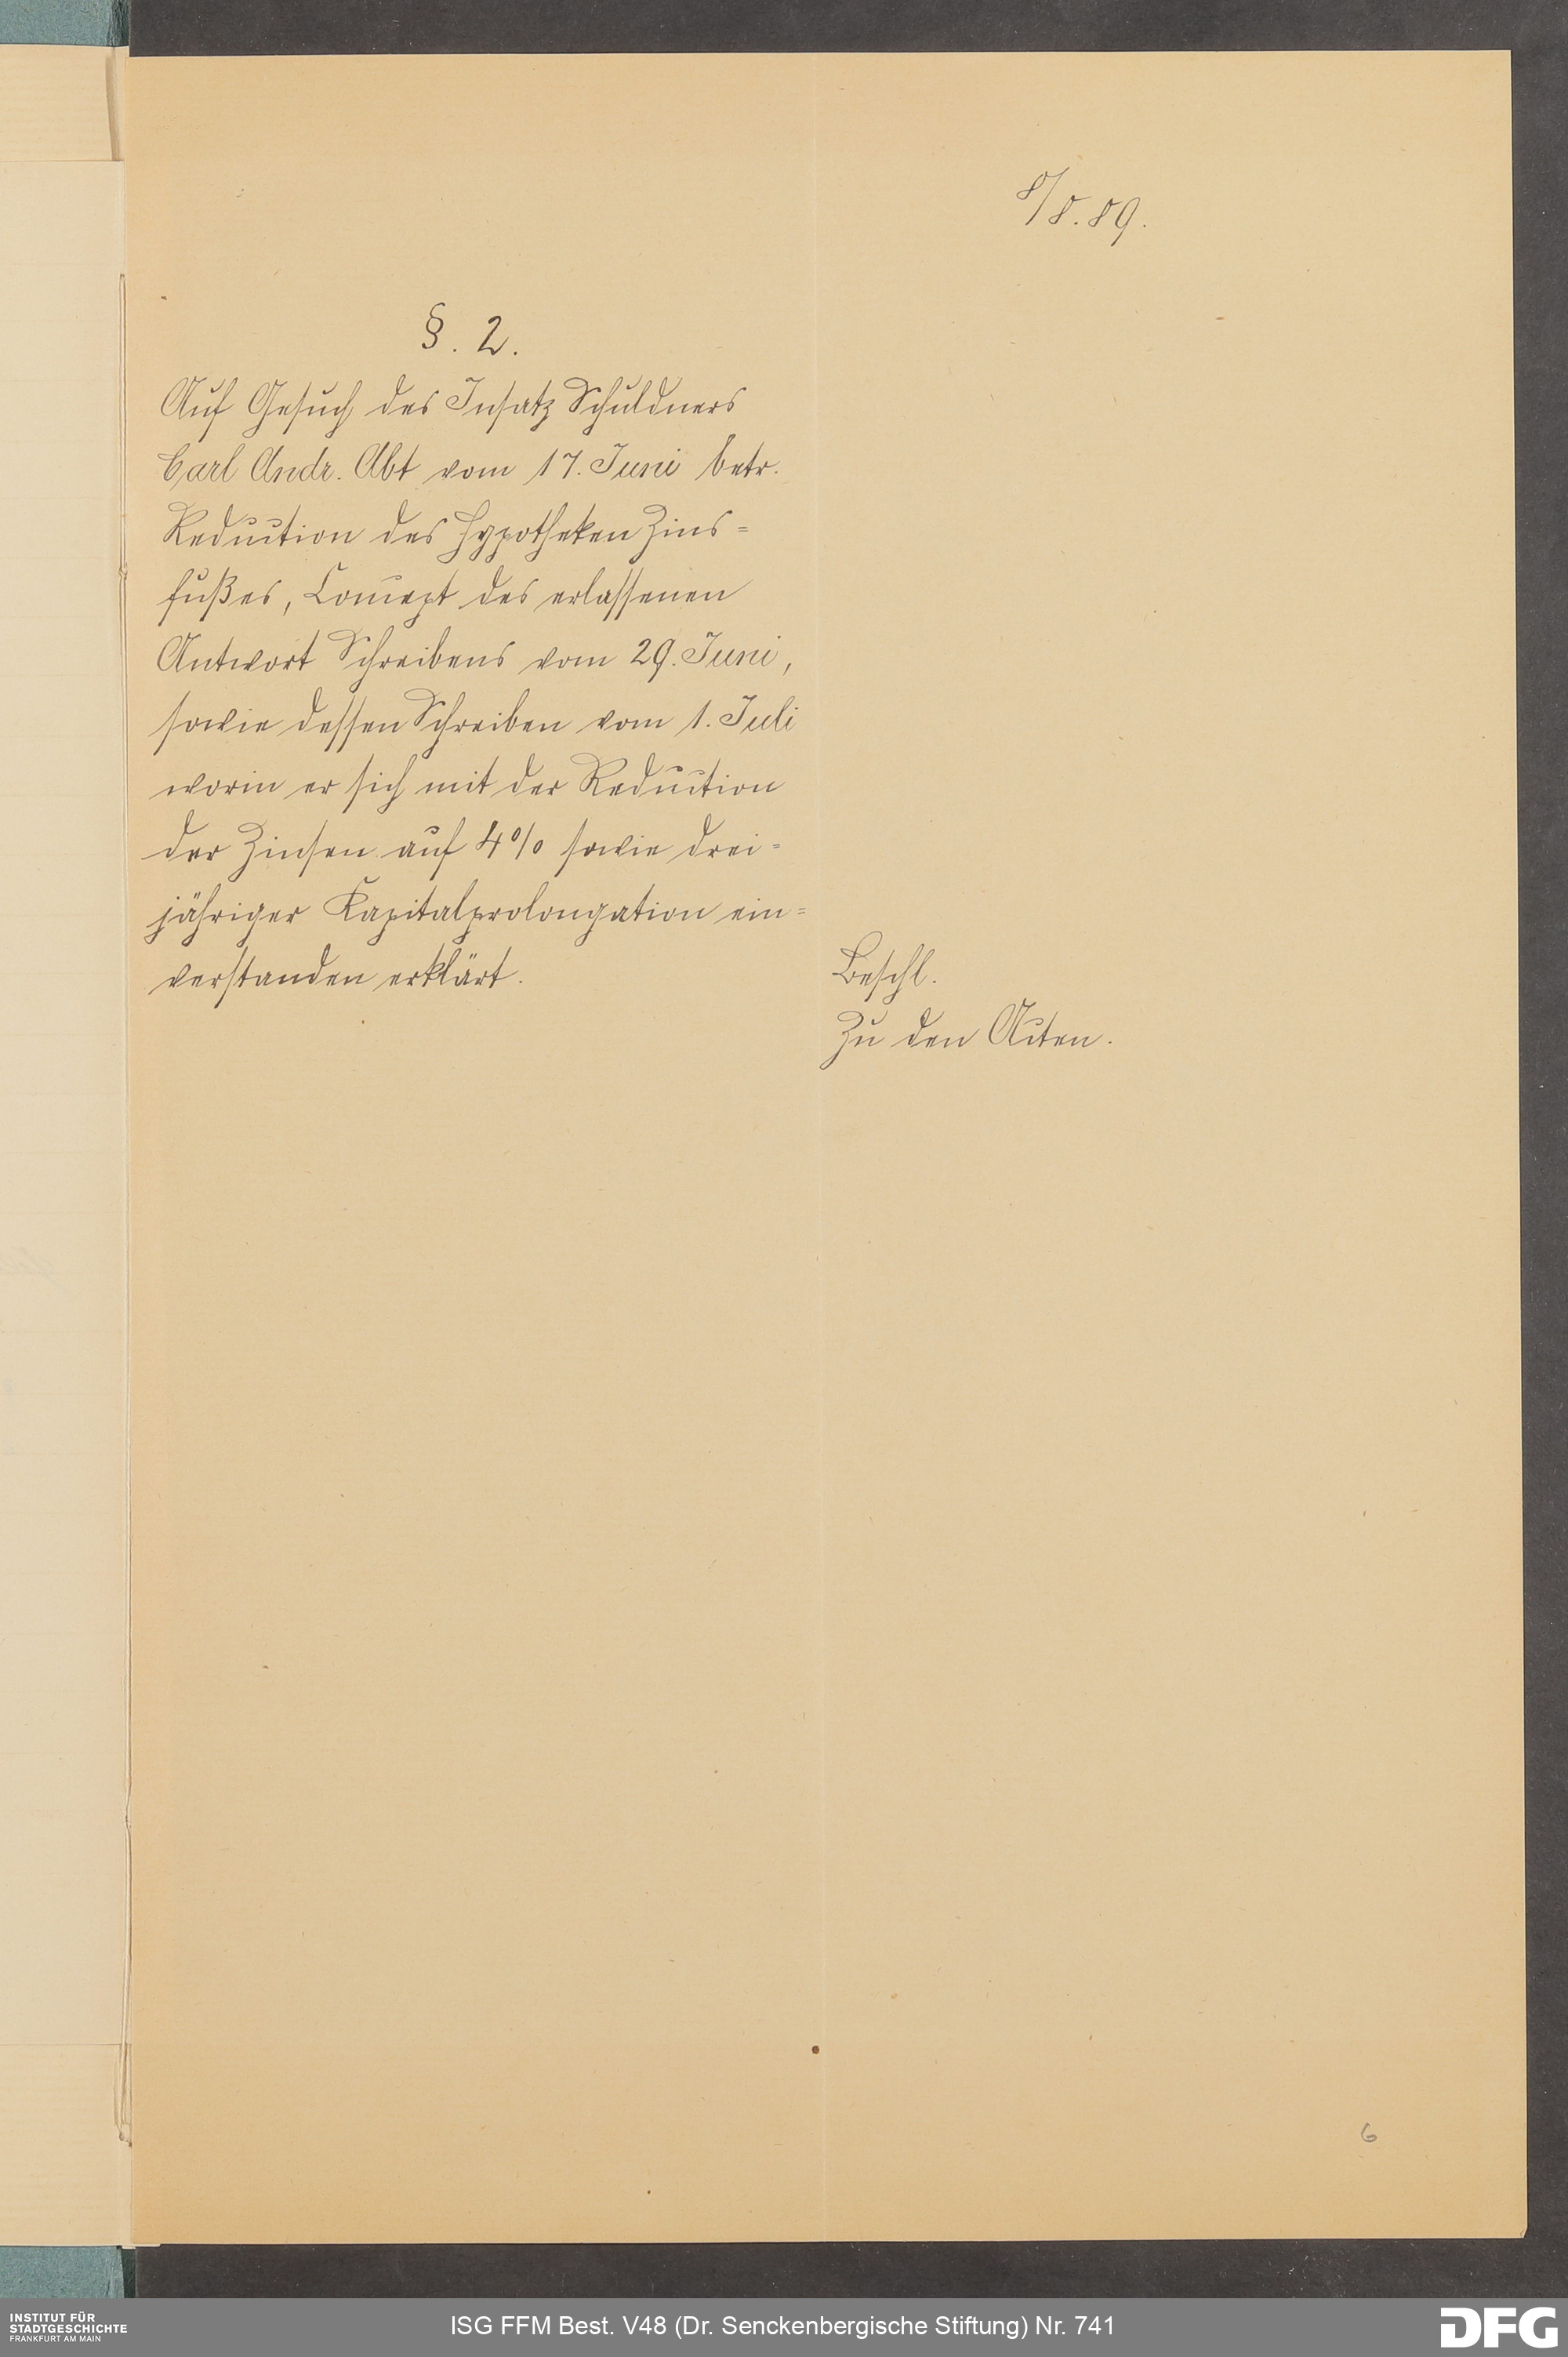 8/8. 89.
§. 2.
Auf Gesuch des Insatz Schuldners
Carl Andr. Abt vom 17. Juni betr.
Reduction des Hypotheken Zins=
fußes, Concept des erlassenen
Antwort Schreibens vom 29. Juni,
sowie dessen Schreiben vom 1. Juli
worin er sich mit der Reduction
der Zinsen auf 4% sowie drei=
jähriger Kapitalprolongation ein=
verstanden erklärt.
Beschl.
Zu den Acten.
6
INSTITUT FÜR
STADTGESCHICHTE
FRANKFURT AM MAIN
ISG FFM Best. V48 (Dr. Senckenbergische Stiftung) Nr. 741
DFG